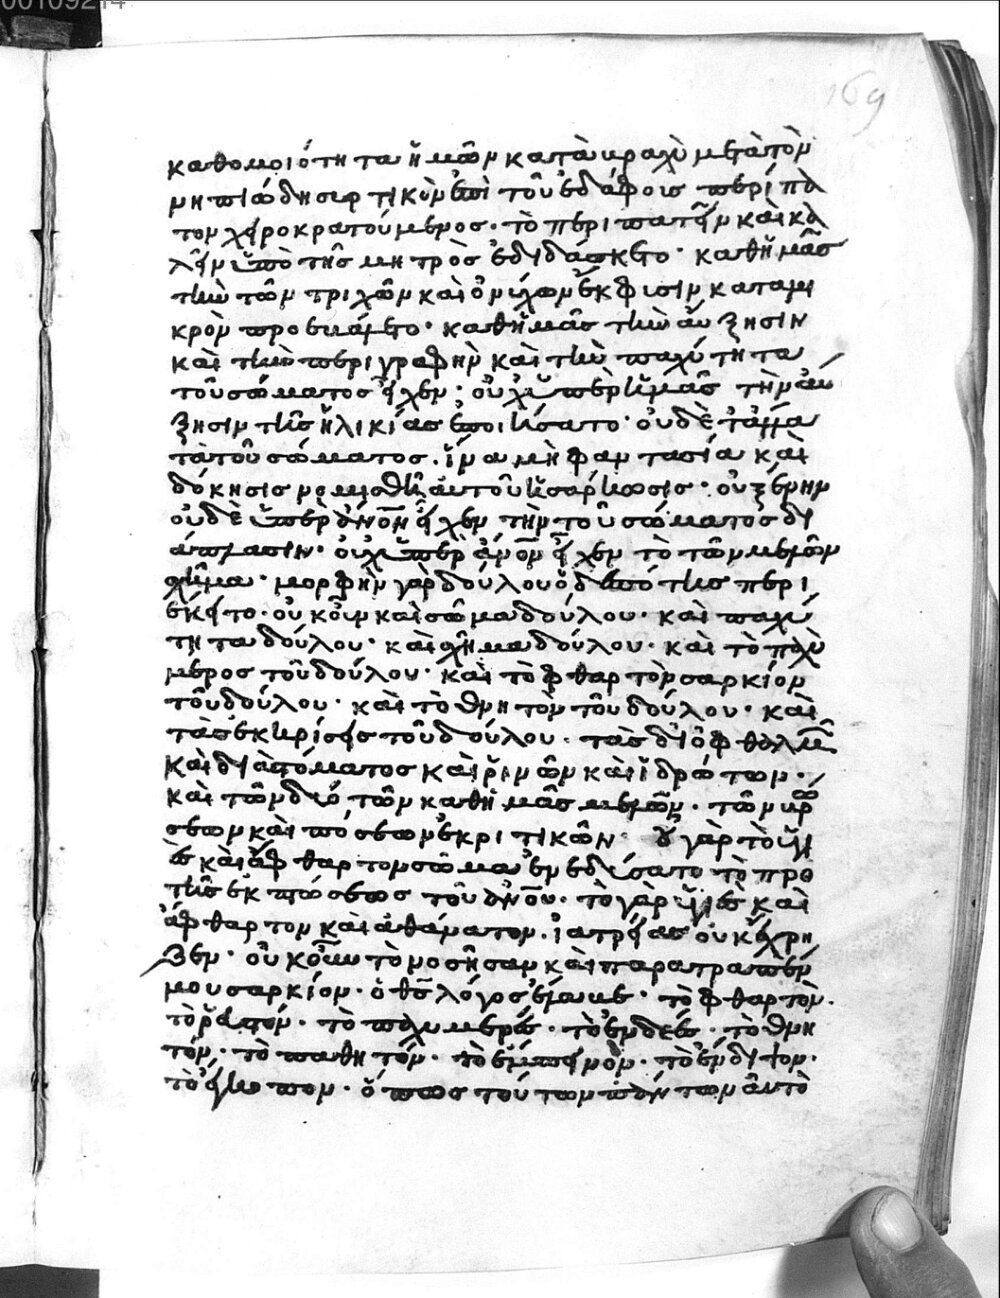 00109214
169
καθομοιότητα ἡμῶν κατὰ βραχὺ μετὰ τὸν
νηπιώδη σαρτικὸν ἐπὶ τοῦ ἐδάφους περίπα
τον χειροκρατούμενος· τὸ περιπατεῖν καὶ κα
λεῖν ὑπὸ τῆς μητρὸς ἐδιδάσκετο· καθ ἡμᾶς
τὴν τῶν τριχῶν καὶ ὀνύχων ἔκφυσιν καταμι
κρὸν προσεκάμετο· καθ ἡμᾶς τὴν αὔξησιν
καὶ τὴν περιγραφὴν καὶ τὴν παχύτητα
τοῦ σώματος εἶχεν· οὐχ ὑπὲρ ἡμᾶς τὴν αὔ
ξησιν τῆς ἡλικίας ἐποιήσατο· οὐδὲ τἄμμα
τὰ τοῦ σώματος· ἵνα μὴ φαντασία καὶ
δόκησις νομισθῆ αὐτοῦ ἡ σάρκωσις· οὐ ξένην
οὐδὲ ὑπὲρ ἄνον εἶχεν τὴν τοῦ σώματος δι
άπλασιν· οὐχ ὑπὲρ ἄνον εἶχεν τὸ τῶν μελῶν
σχῆμα· μορφὴν γὰρ δούλου ὁ δεσπότης περι
έκειτο· οὐκοῦν καὶ σῶμα δούλου· καὶ παχύ
τητα δούλου· καὶ σχῆμα δούλου· καὶ τὸ πολυ
μερὸς τοῦ δούλου· καὶ τὸ φθαρτὸν σαρκίον
τοῦ δούλου· καὶ τὸ θνητὸν τοῦ δούλου· καὶ
τὰς ἐκκρίσεις τοῦ δούλου· τὰς δι ὀφθαλμῶν
καὶ διὰ στόματος καὶ ῥινῶν καὶ ἱδρώτων·
καὶ τῶν δι τῶν καθ ἡμᾶς μελῶν· τῶν βρώ
σεων καὶ πόσεων ἐκκριτικῶν· οὐ γὰρ τὸ ὑγι
ὲς καὶ ἄφθαρτον σῶμα ἐνεδύσατο τὸ πρὸ
τῆς ἐκπτώσεως τοῦ ἄνου· τὸ γὰρ ὑγιὲς καὶ
ἄφθαρτον καὶ ἀθάνατον· ἰατρείας οὐκ ἔχρη
ζεν· οὐκοῦν τὸ νοσῆσαν καὶ παρατραπὲν
μου σαρκίον· ὁ θς λόγος ἔλαβε· τὸ φθαρτὸν·
τὸ ῥευστόν· τὸ πολυμερές· τὸ ἐνδεές· τὸ θνη
τόν· τὸ παθητόν· τὸ ἔμπεινον· τὸ ἔνδιψον·
τὸ ἔγκοπον· ὅπως τούτων πάντων αὐτὸ